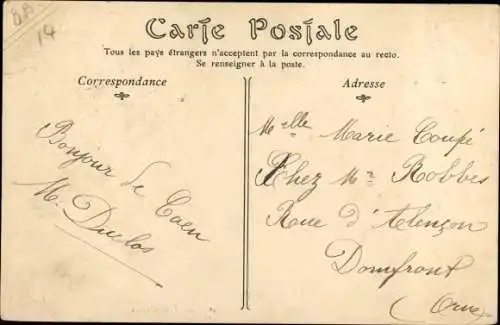 8B
14
Carte Postale
Tous les pays étrangers n'acceptent pas la correspondance au recto.
Se renseigner à la poste.
Correspondance
Adresse
Bonjour de Caen
M. Duclos
Melle Marie Coupé
Chez Mr Robbes
Rue d'Alençon
Domfront
(Orne